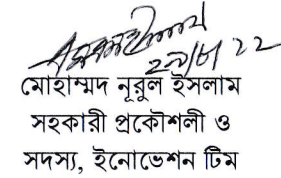 ২৯/৮/২২
মোহাম্মদ নূরুল ইসলাম
সহকারী প্রকৌশলী ও
সদস্য, ইনোভেশন টিম